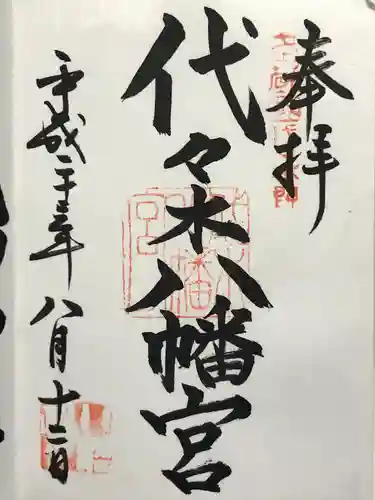 奉拝
代々木八幡宮
平成二十三年
八月十二日